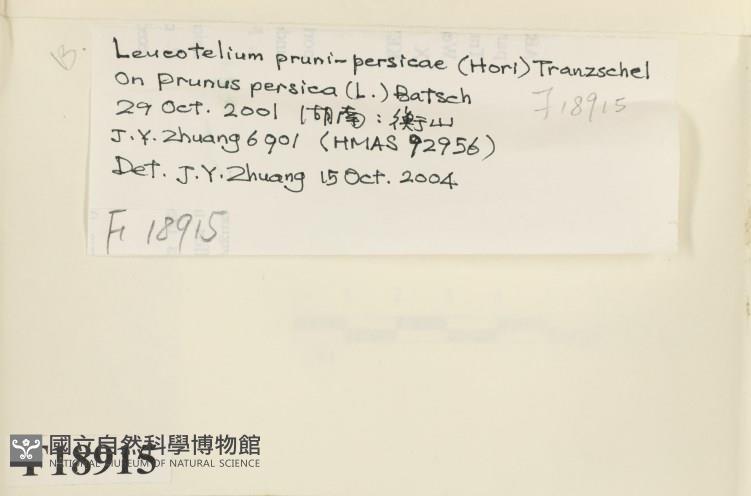 B.
Leucotelium pruni-persicae (Hori) Tranzschel
On Prunus persica (L.) Batsch
29 Oct. 2001 湖南: 衡山
F 18915
J.Y. Zhuang 6901 (HMAS 92956)
Det. J.Y. Zhuang 15 Oct. 2004
F 18915
國立自然科學博物館
NATIONAL MUSEUM OF NATURAL SCIENCE
F18915